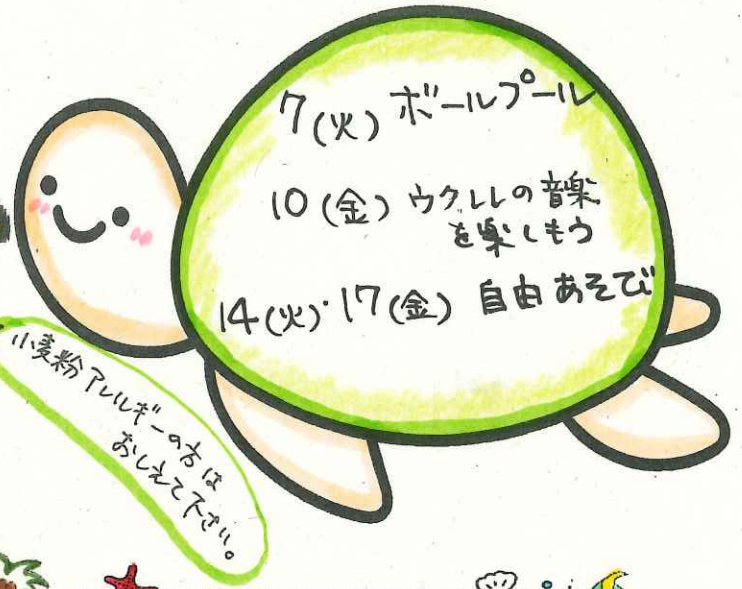 7(火) ボールプール
10(金) ウクレレの音楽
を楽しもう
14(火)・17(金) 自由あそび
小麦粉アレルギーの方は
おしえて下さい。